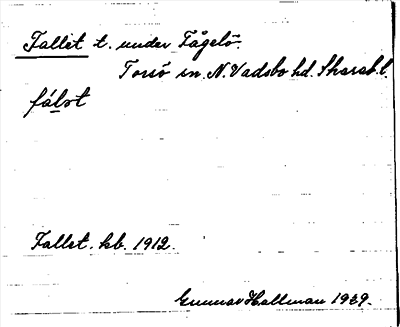 Fallet t. under Fågelö.
Torsö sn. N. Vadsbo hd. Skarab. l.
fálɛt
Fallet. kb. 1912.
Gunnar Hallman 1939.